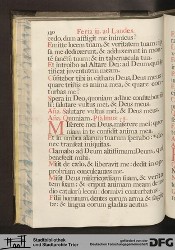 Feria ij. ad Laudes.
cedo, dum affligit me inimicus?
Emitte lucem tuam, & veritatem tuam:
me deduxerunt, & adduxerunt in
tuum, & in tabernacula tua.
Et introibo ad Altare Dei: ad Deum qui
lætificat juventutem meam.
Confitebor tibi in cithara Deus, Deus meus:
quare tristis es anima mea, & quare
me?
Spera in Deo, quoniam adhuc confitebor
illi: salutare vultus mei, & Deus meus.
Salutare vultus mei, & Deus meus.
Miserere mei Deus, miserere mei:
in te confidit anima mea.
Et in umbra alarum tuarum sperabo:
nec transeat iniquitas.
Clamabo ad Deum altissimum: Deum, qui
benefecit mihi.
Misit de cælo, & liberavit me: dedit in
opprobrium conculcantes me.
Misit Deus misericordiam suam, & veritatem
suam: & eripuit animam meam de
medio catulorum leonum: dormivi conturbatus.
Filii hominum, dentes eorum arma &
sagittæ: & lingua eorum gladius acutus.
Stadtbibliothek
und Stadtarchiv Trier
Gefördert durch
Deutsche Forschungsgemeinschaft
DFG